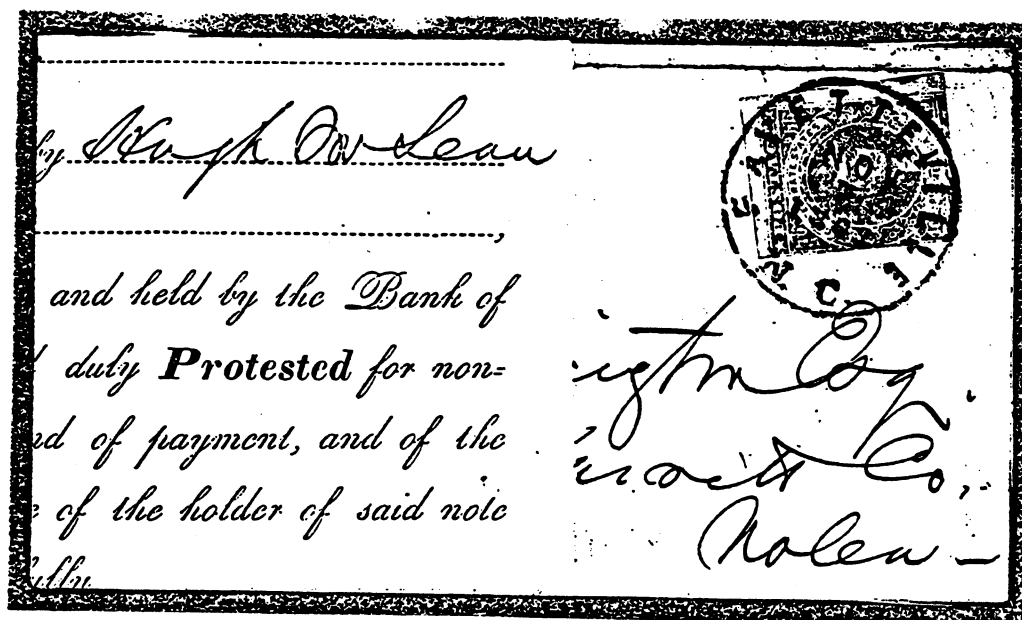 by Hugh McLean
and held by the Bank of
duly Protested for non=
nd of payment, and of the
e of the holder of said note
fully
FAYETTEVILLE
N.C.
NOV
ington Esq.
Co,